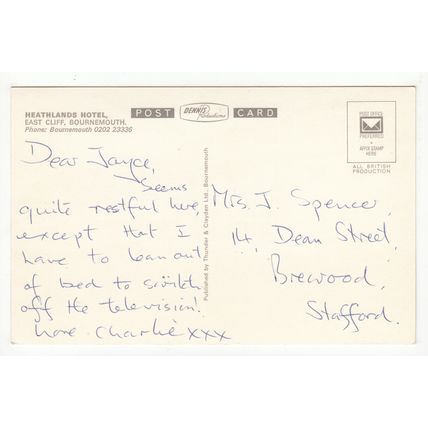 HEATHLANDS HOTEL,
EAST CLIFF, BOURNEMOUTH.
Phone: Bournemouth 0202 23336
POST DENNIS Productions CARD
POST OFFICE
PREFERRED
AFFIX STAMP
HERE
ALL BRITISH
PRODUCTION
Dear Joyce,
Seems
quite restful here,
except that I
have to lean out
of bed to switch
off the television!
Love Charlie xxx
Published by Thunder & Clayden Ltd., Bournemouth
Mrs. J. Spencer,
14, Dean Street,
Brewood,
Stafford.